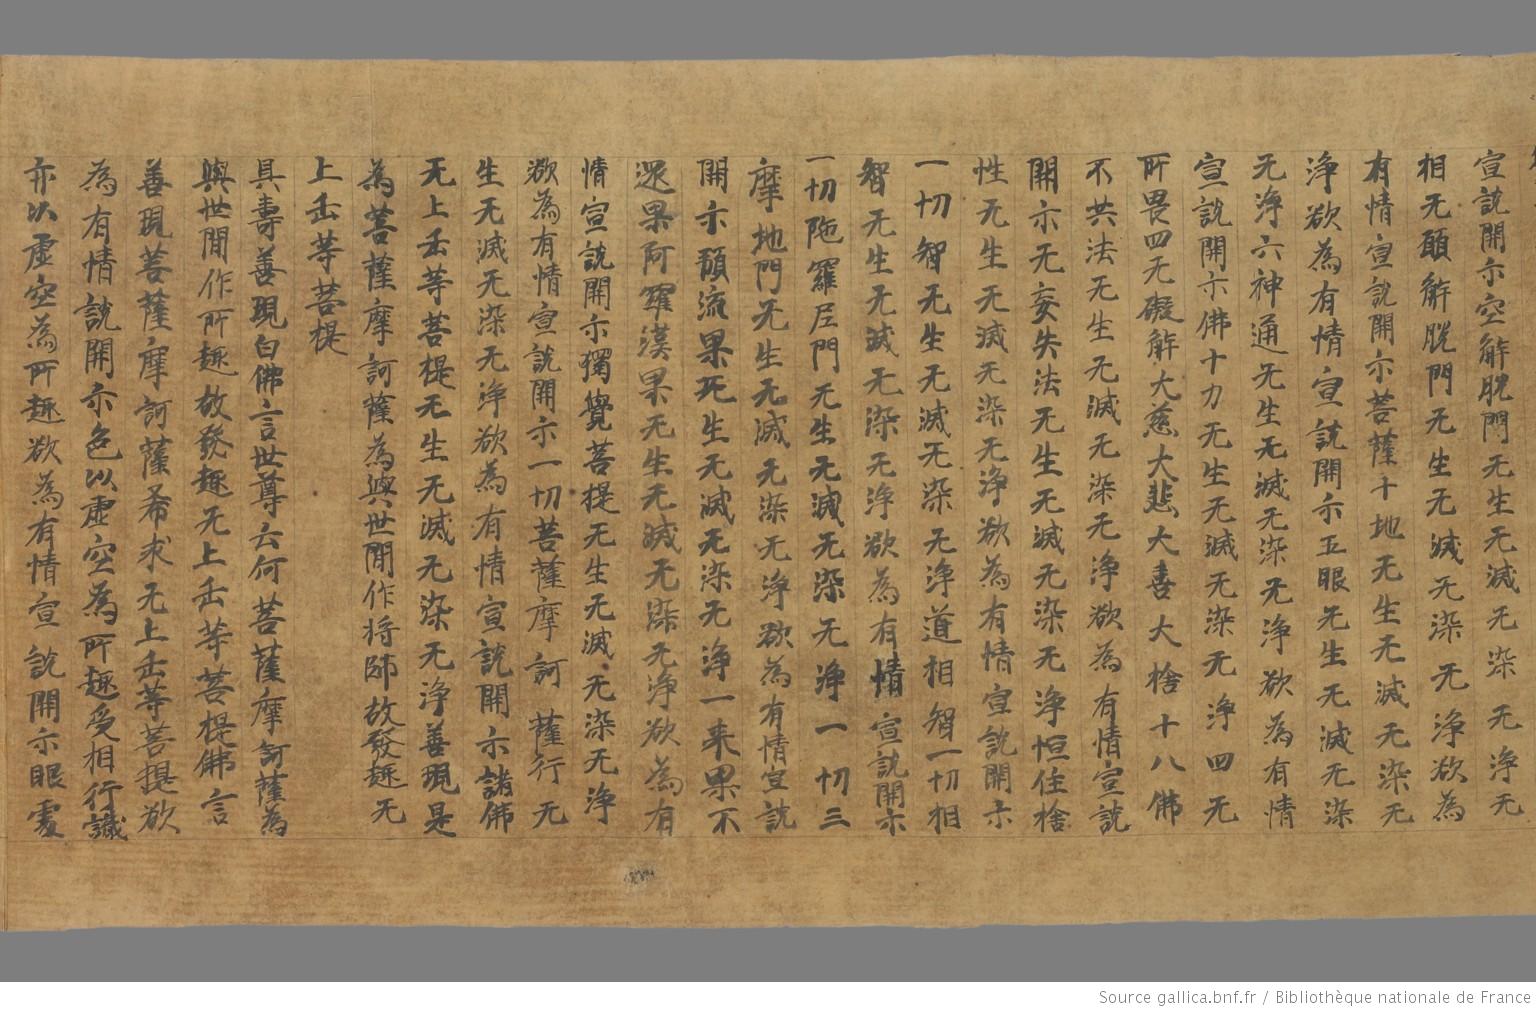 宣説開示空解脱門无生无滅无染无淨无
相无願解脱門无生无滅无染无淨欲為
有情宣説開示菩薩十地无生无滅无染无
淨欲為有情宣説開示五眼无生无滅无染
无淨六神通无生无滅无染无淨欲為有情
宣説開示佛十力无生无滅无染无淨四无
所畏四无礙解大慈大悲大喜大捨十八佛
不共法无生无滅无染无淨欲為有情宣説
開示无妄失法无生无滅无染无淨恒住捨
性无生无滅无染无淨欲為有情宣説開示
一切智无生无滅无染无淨道相智一切相
智无生无滅无染无淨欲為有情宣説開示
一切陁羅尼門无生无滅无染无淨一切三
摩地門无生无滅无染无淨欲為有情宣説
開示預流果无生无滅无染无淨一来果不
還果阿羅漢果无生无滅无染无淨欲為有
情宣説開示獨覺菩提无生无滅无染无淨
欲為有情宣説開示一切菩薩摩訶薩行无
生无滅无染无淨欲為有情宣説開示諸佛
无上正等菩提无生无滅无染无淨善現是
為菩薩摩訶薩為與世間作将師故發趣无
上正等菩提
具壽善現白佛言世尊云何菩薩摩訶薩為
與世間作所趣故發趣无上正等菩提佛言
善現菩薩摩訶薩希求无上正等菩提欲
為有情説開示色以虛空為所趣受想行識
亦以虛空為所趣欲為有情宣説開示眼處
Source gallica.bnf.fr / Bibliothèque nationale de France